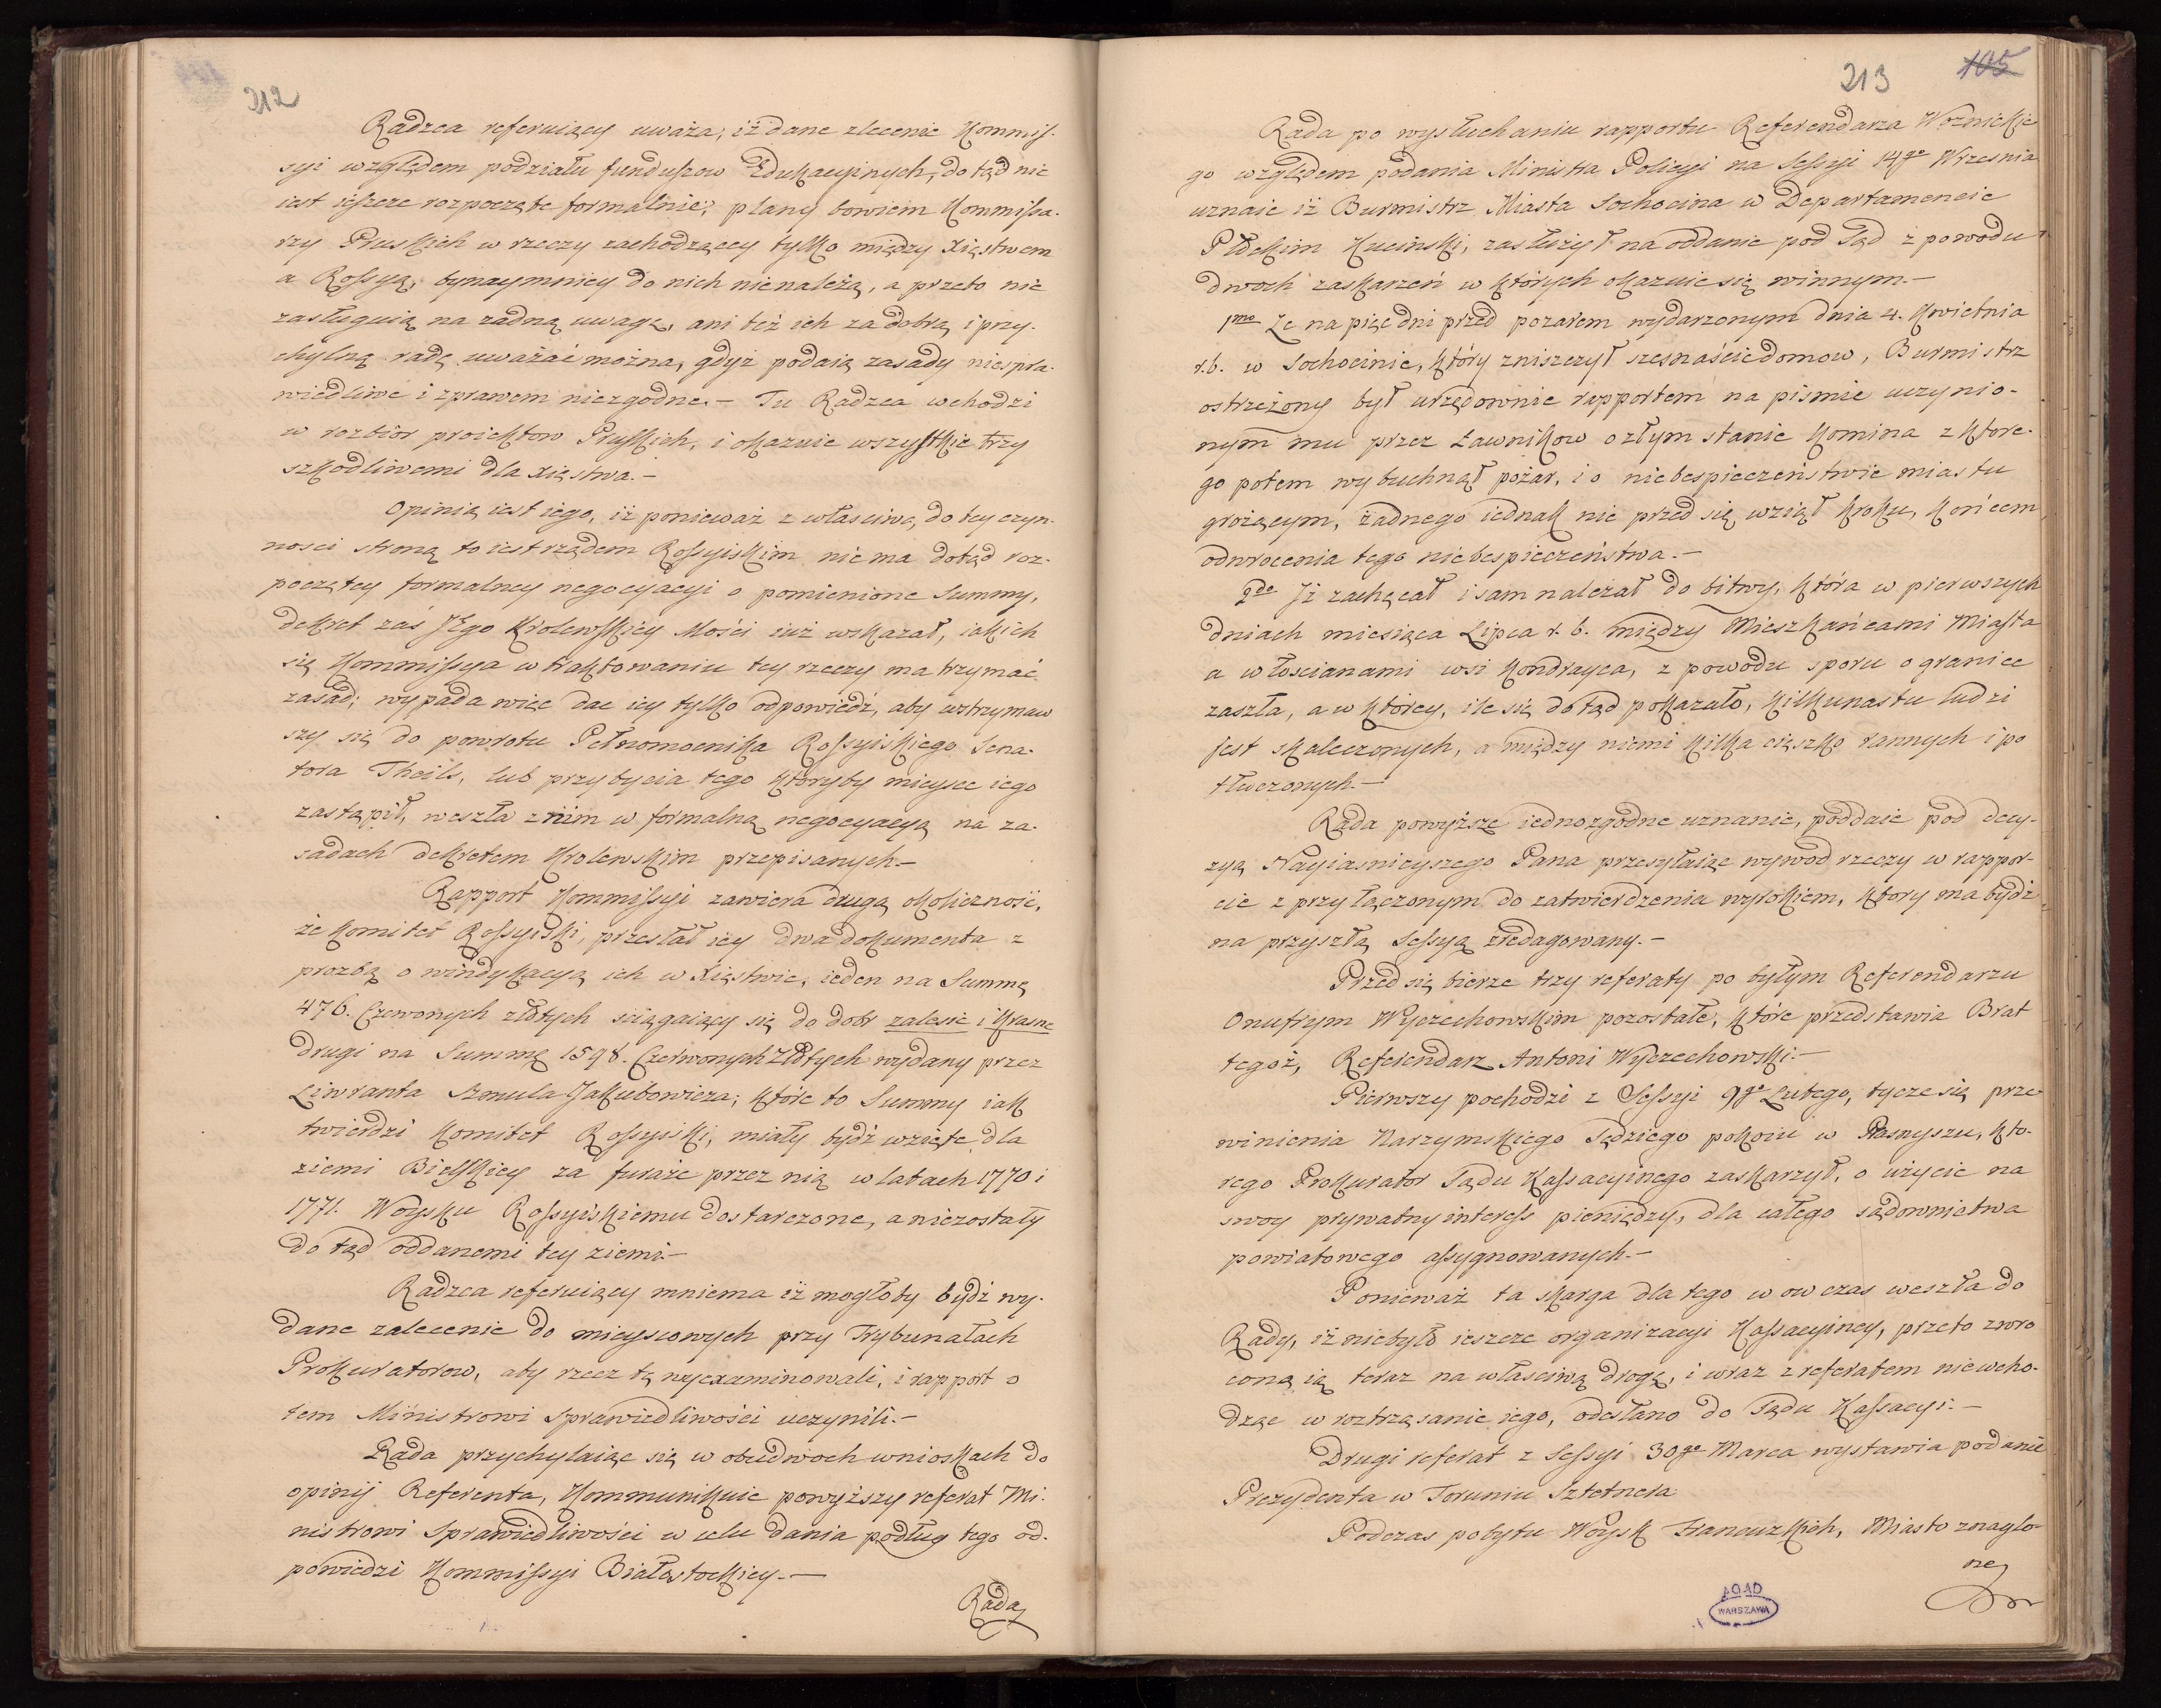 212
Radzca referuiący uważa, iż dane zlecenie Kommis-
syi względem podziału funduszow Edukacyinych, do tąd nie
iest ieszcze rozpoczęte formalnie; plany bowiem Kommissa-
rzy Pruskich w rzeczy zachodzącey tylko między Xięstwem
a Rossyą, bynaymniey do nich nienależą, a przeto nie
zasługuią na zadną uwagę, ani też ich za dobrą i przy-
chylną radę uważać można, gdyż podaią zasady niespra-
wiedliwe i z prawem niezgodne.— Tu Radzca wchodzi
w rozbior proiektow Pruskich, i okazuie wszystkie trzy
szkodliwemi dla xięstwa.—
Opinią iest iego, iż ponieważ z własciwą do tey czyn-
nosci stroną to iest rządem Rossyiskim nie ma dotąd roz-
poczętey formalney negocyacyi o pomienione Summy,
dekret zaś JEgo Królewskiéy Mości iuż wskazał, iakich
się Kommissya w traktowaniu tey rzeczy ma trzymać
zasad; wypada więc dac iey tylko odpowiedź, aby wstrzymaw
szy się do powrotu Pełnomocnika Rossyiskiego Sena-
tora Theils, lub przybycia tego któryby mieysce iego
zastąpił, weszła z nim w formalną negocyacyą na za-
sadach dekretem Krolewskim przepisanych.—
Rapport Kommissyi zawiera drugą okoliczność,
że Komitet Rossyiski, przesłał iey dwa dokumenta z
prozbą o windykacyą ich w Xięstwie, ieden na Summę
476. Czerwonych złotych sciągaiący się do dobr zalesie i Krasne
drugi na Summę 1598. Czerwonych Złotych wydany przez
Liwranta Szmula Jakubowicza; które to Summy iak
twierdzi Komitet Rossyiski, miały bydź wzięte dla
ziemi Bielskiey za furaże przez nią w latach 1770 i
1771. Woysku Rossyiskiemu dostarczone, a niezostały
do tąd oddanemi tey ziemi.—
Radzca referuiący mniema iż mogłoby bydź wy-
dane zalecenie do mieyscowych przy Trybunałach
Prokuratorow, aby rzecz tę wyexaminowali, i rapport o
tem Ministrowi Sprawiedliwości uczynili.—
Rada przychylaiąc się w obudwoch wnioskach do
opinij Referenta, Kommunikuie powyższy referat Mi-
nistrowi Sprawiedliwości w celu dania podług tego od-
powiedzi Kommissyi Białostockiey.—
Rada
213 105
Rada po wysłuchaniu rapportu Referendarza Woznickie
go względem podania Ministra Policyi na Sessyi 14go Wrzesnia
uznaie iż Burmistrz Miasta Sochocina w Departamencie
Płockim Kucinski, zasłużył na oddanie pod Sąd z powodu
dwoch zaskarzeń w których okazuie się winnym.—
1mo Ze na pięć dni przed pozarem wydarzonym dnia 4. Kwietnia
r.b. w Sochocinie, który zniszczył szesnaście domow, Burmistrz
ostrzeżony był urzędownie rapportem na pismie uczynio-
nym mu przez Ławnikow o złym stanie Komina z które-
go potem wybuchnął pożar, i o niebespieczeństwie miastu
grożącym, żadnego iednak nie przed się wziął kroku, końcem
odwrocenia tego niebespieczeństwa.—
2do Jż zachęcał i sam należał do bitwy, która w pierwszych
dniach miesiąca Lipca r. b. między Mieszkańcami Miasta
a włoscianami wsi Kondrayca, z powodu sporu o granice
zaszła, a w którey, ile się dotąd pokazało, kilkunastu ludzi
jest skaleczonych, a między niemi kilka cięszko rannych i po
tłuczonych.—
Rada powyższe iednozgodne uznanie, poddaie pod decy-
zyą Nayiasnieyszego Pana przesyłaiąc wywod rzeczy w rappor-
cie z przyłączonym do zatwierdzenia wyrokiem, który ma bydź
na przyszłą Sessyą zredagowany.—
Przed się bierze trzy referaty po byłym Referendarzu
Onufrym Wyczechowskim pozostałe, które przedstawia Brat
tegoż, Referendarz Antoni Wyczechowski.—
Pierwszy pochodzi z Sessyi 9go Lutego, tycze się prze
winienia Narzymskiego Sędziego pokoiu w Prasnyszu, kto-
rego Prokurator Sądu Kassacyinego zaskarzył, o użycie na
swoy prywatny interess pieniędzy, dla całego sądownictwa
powiatowego assygnowanych.—
Ponieważ ta skarga dla tego w ow czas weszła do
Rady, iż niebyło ieszcze organizacyi Kassacyiney, przeto zwro
coną ią teraz na własciwą drogę, i wraz z referatem nie wcho-
dząc w roztrząsanie iego, odesłano do Sądu Kassacyi.—
Drugi referat z Sessyi 30go Marca wystawia podanie
Prezydenta w Toruniu Sztetnera
Podczas pobytu Woysk Francuzkich, Miasto znaglo-
ne
AGAD
WARSZAWA